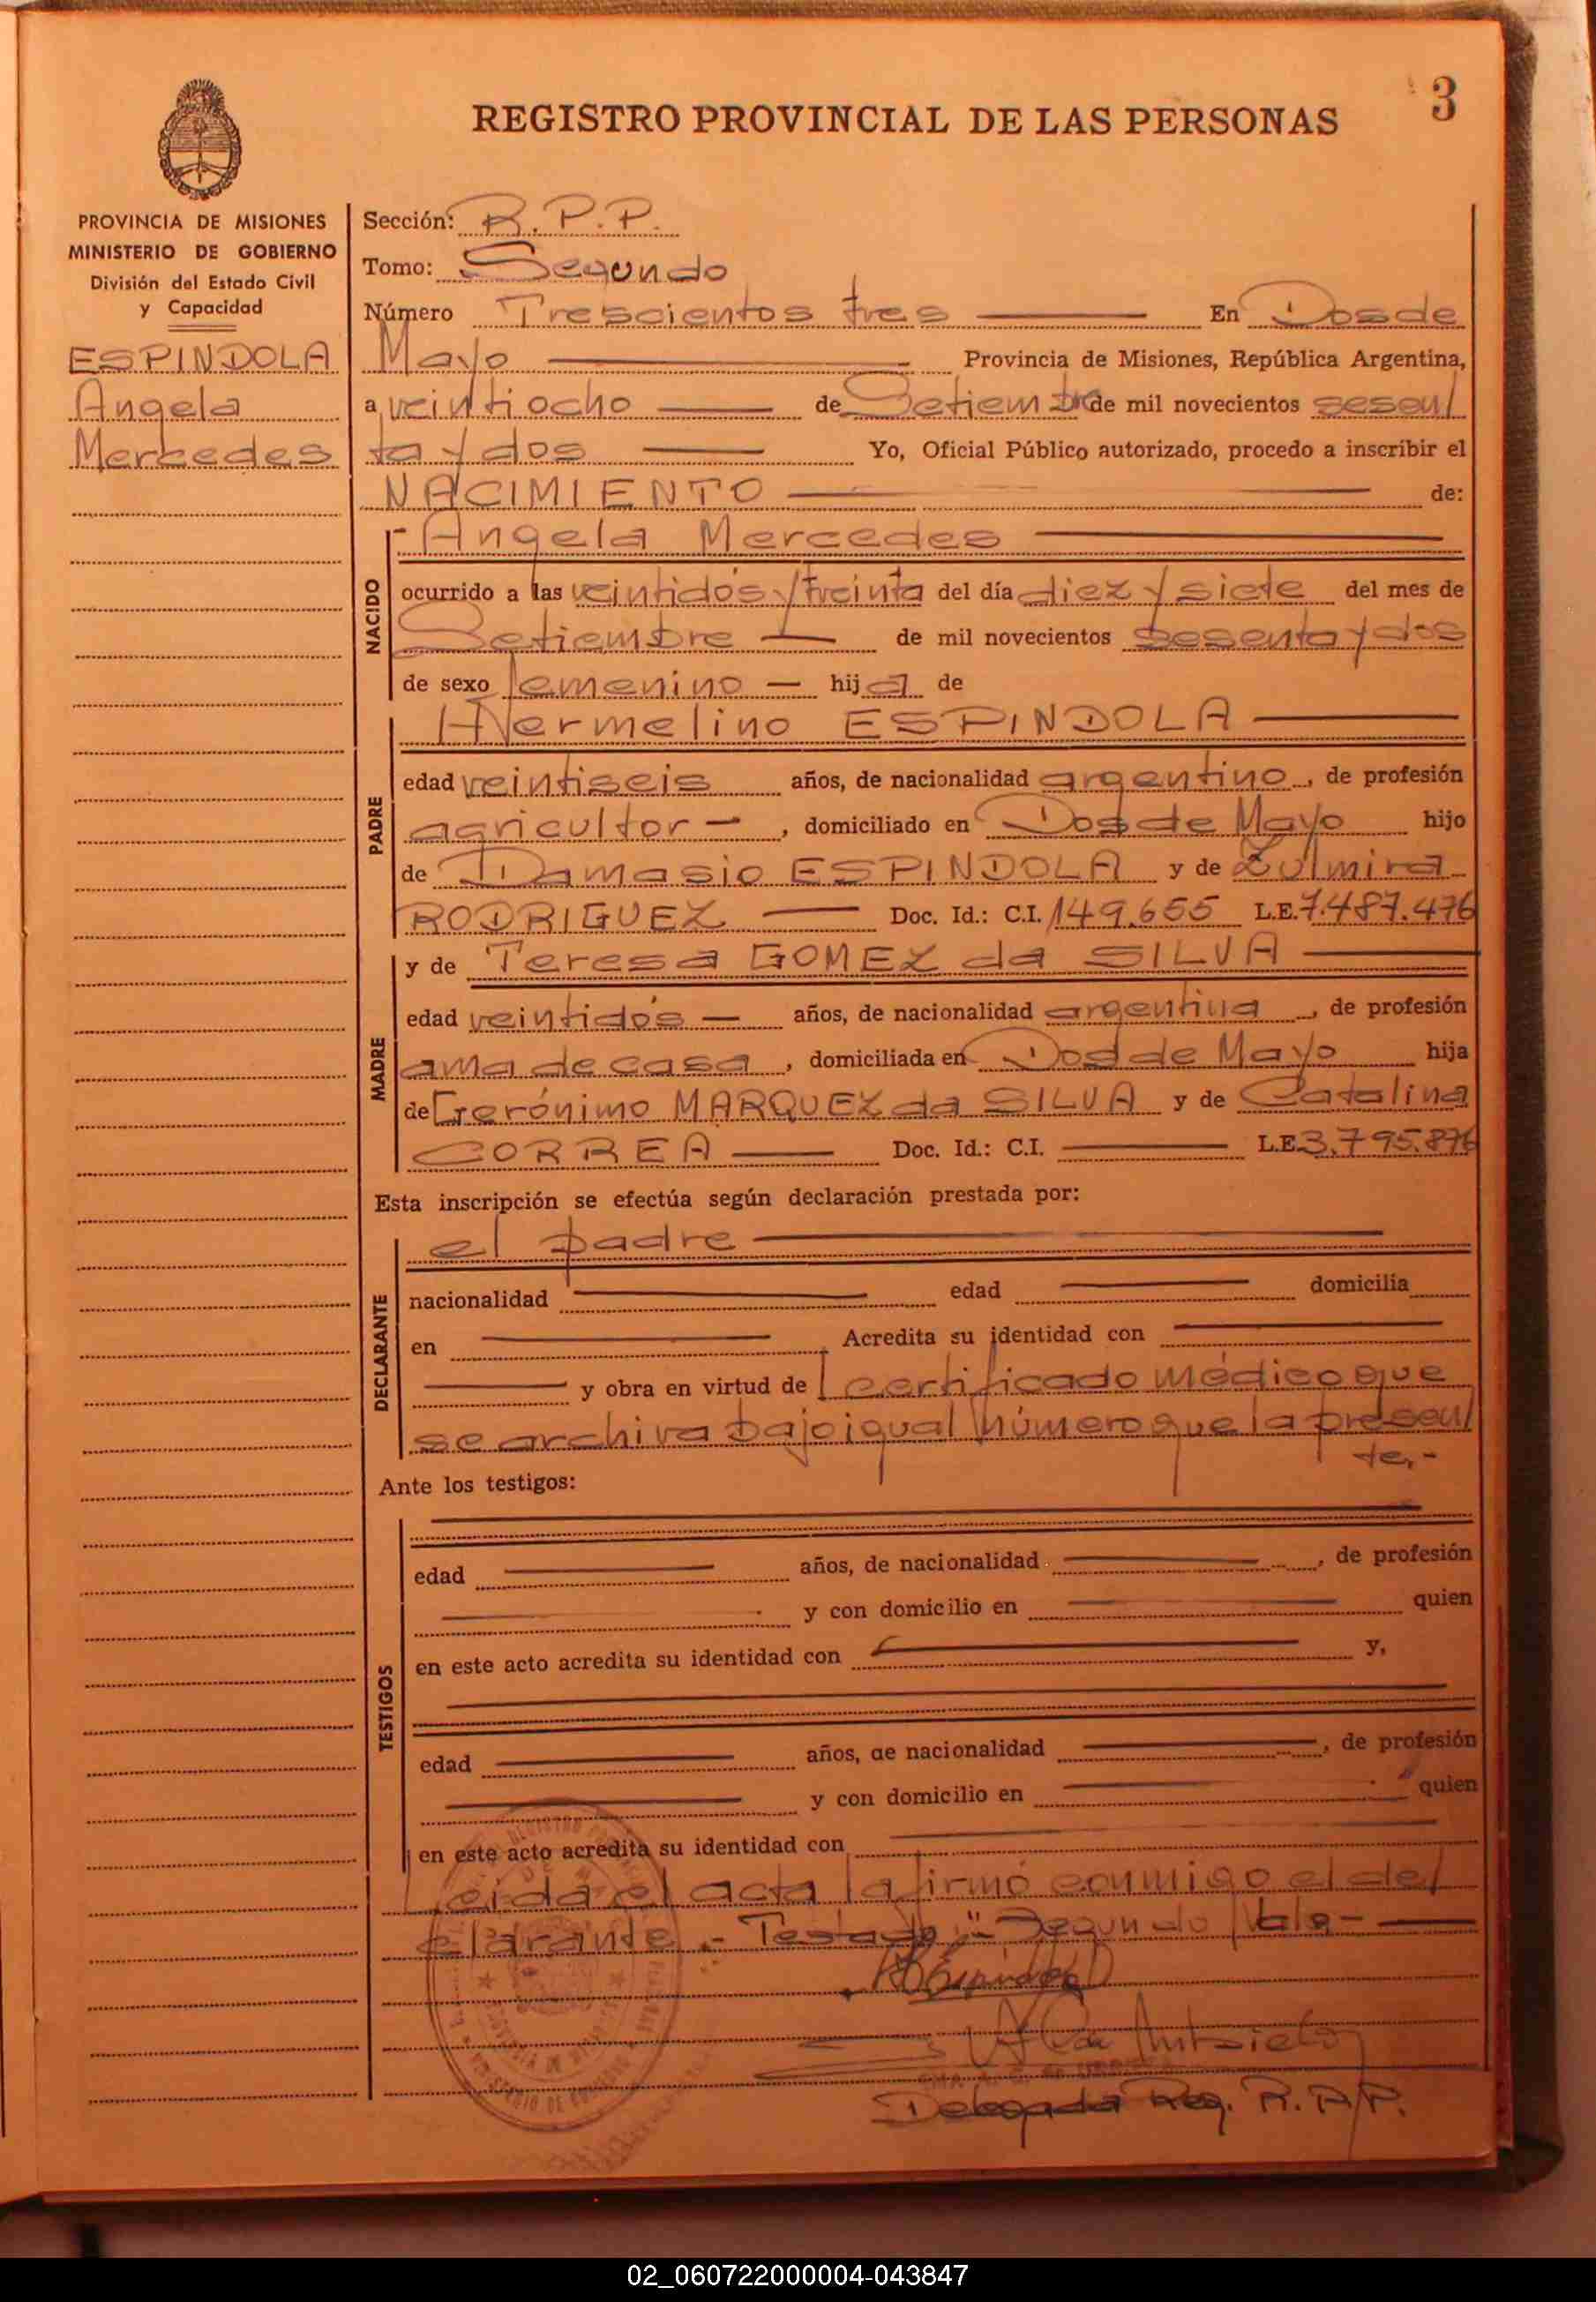 3
REGISTRO PROVINCIAL DE LAS PERSONAS
PROVINCIA DE MISIONES
MINISTERIO DE GOBIERNO
División del Estado Civil
y Capacidad
ESPINDOLA
Angela
Mercedes
Sección: R.P.P.
Tomo: Segundo
Número Trescientos tres En Dos de
Mayo Provincia de Misiones, República Argentina,
a veintiocho de Setiembre de mil novecientos sesen/
ta y dos Yo, Oficial Público autorizado, procedo a inscribir el
NACIMIENTO de:
NACIDO
Angela Mercedes
ocurrido a las veintidós y treinta del día diez y siete del mes de
Setiembre de mil novecientos sesenta y dos
de sexo femenino hija de
PADRE
Hermelino ESPINDOLA
edad veintiseis años, de nacionalidad argentino, de profesión
agricultor, domiciliado en Dos de Mayo hijo
de Damasio ESPINDOLA y de Zulmira
RODRIGUEZ Doc. Id.: C.I. 149.655 L.E. 7.487.476
MADRE
y de Teresa GOMEZ da SILVA
edad veintidós años, de nacionalidad argentina, de profesión
ama de casa, domiciliada en Dos de Mayo hija
de Gerónimo MARQUEZ da SILVA y de Catalina
CORREA Doc. Id.: C.I. L.E. 3.795.876
Esta inscripción se efectúa según declaración prestada por:
DECLARANTE
el padre
nacionalidad edad domicilia
en Acredita su identidad con
y obra en virtud de certificado médico que
se archiva bajo igual número que la presen/
te.-
Ante los testigos:
TESTIGOS
edad años, de nacionalidad, de profesión
y con domicilio en quien
en este acto acredita su identidad con y,
edad años, de nacionalidad, de profesión
y con domicilio en quien
en este acto acredita su identidad con
Leida el acta la firmó conmigo el de/
clarante.- Testado: "Segundo Vale-
Delegada Reg. R.P.P.
02_060722000004-043847